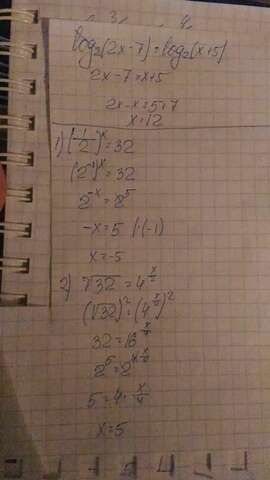 log₂(2x-7)=log₂(x+5)
2x-7=x+5
2x-x=5+7
x=12
1) (1/2)^x=32
(2^-1)^x=32
2^-x=2^5
-x=5 |·(-1)
x=-5
2) √32=4^(x/2)
(√32)²=(4^(x/2))²
32=16^(x/4)
2^5=2^(4·x/4)
5=4·x/4
x=5